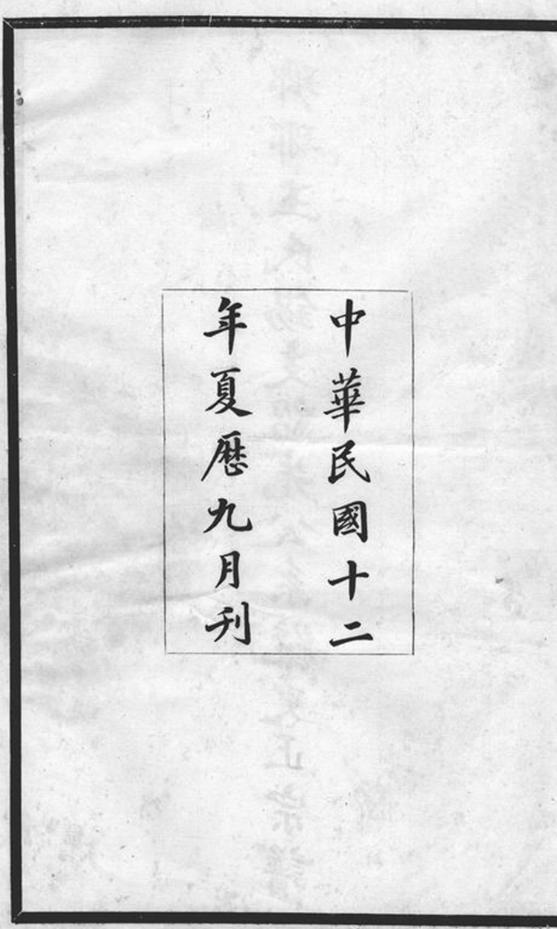 中華民國十二
年夏歷九月刊